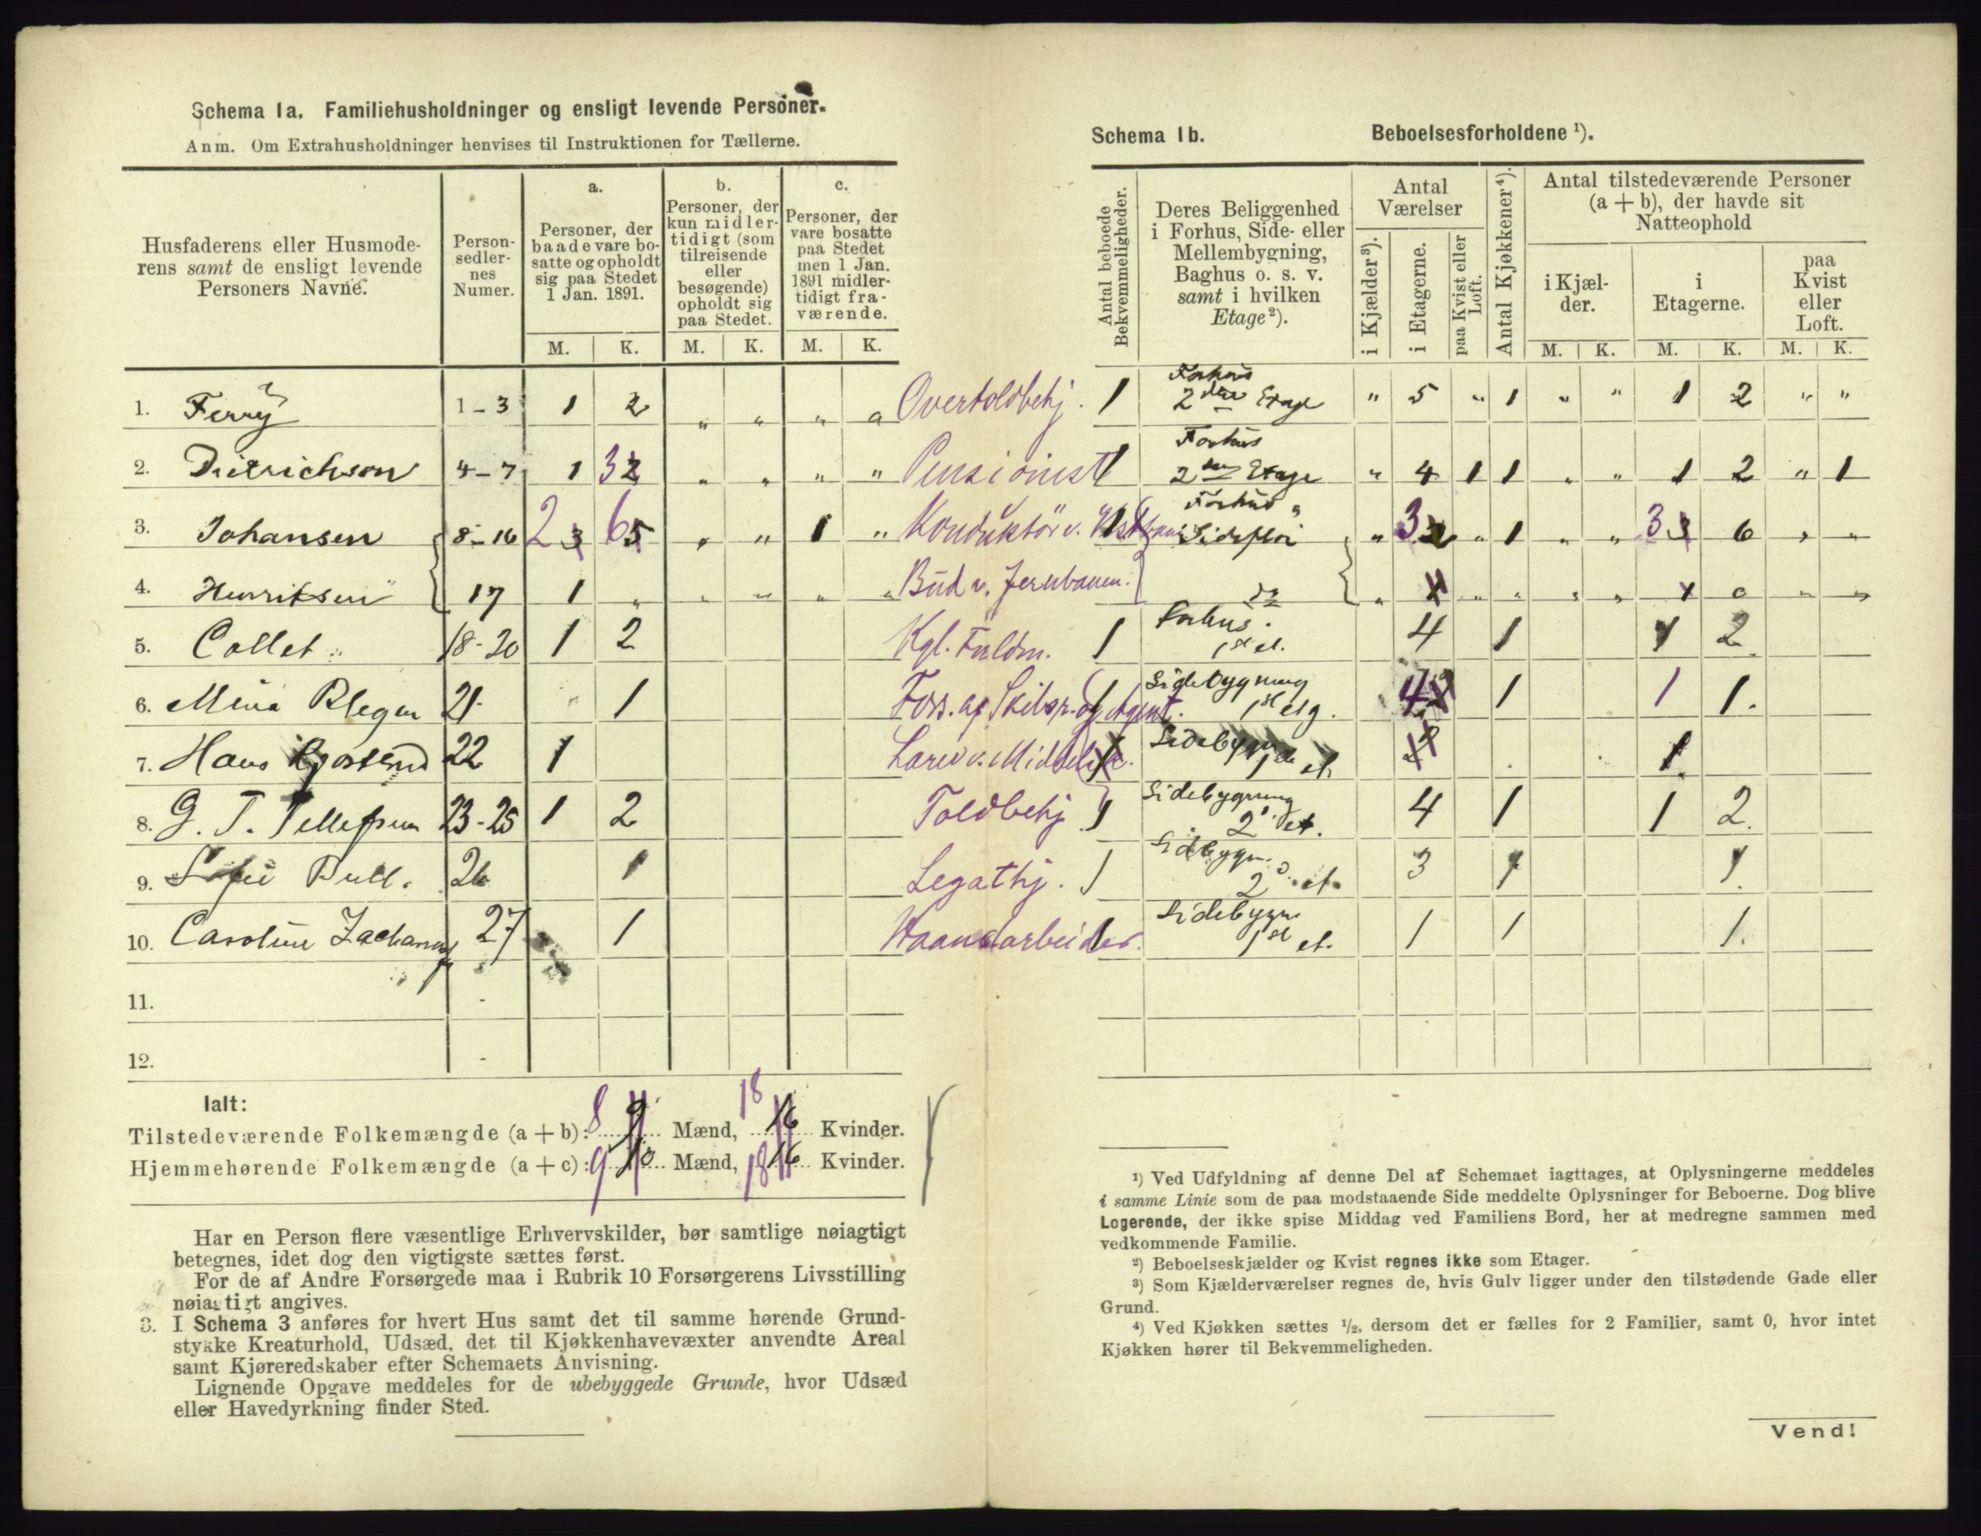 Schema 1a. Familiehusholdninger og ensligt levende Personer.
Anm. Om Extrahusholdninger henvises til Instruktionen for Tællerne.
Husfaderens eller Husmode-
rens samt de ensligt levende
Personers Navne.
Person-
sedler-
nes
Numer.
a.
Personer, der
baade vare bo-
satte og opholdt
sig paa Stedet
1 Jan. 1891.
b.
Personer, der
kun midler-
tidigt (som
tilreisende
eller
besøgende)
opholdt sig
paa Stedet.
c.
Personer, der
vare bosatte
paa Stedet
men 1 Jan.
1891 midler-
tidigt fra-
værende.
M. K. M. K. M. K.
1. Ferry 1-3 1 2 „ „ „ „ Overtoldbetj.
2. Dietrichson 4-7 1 3 2 „ „ „ „ Pensionist
3. Johansen 8-16 2 3 6 5 „ „ 1 „ Konduktör v.
4. Henriksen 17 1 „ „ „ „ „ Bud v. Jernbanen.
5. Collet 18-20 1 2 Kgl. Fuldm.
6. Mina Blegen 21 1 Fors. af Skibsr. og Agent.
7. Hans 22 1
8. G. T. Tellefsen 23-25 1 2 Toldbetj
9. Sofie Bull. 26 1 Legathj.
10. Caroline 27 1 Haandarbeider.
11. -
12. -
Ialt:
Tilstedeværende Folkemængde (a + b): 8 9 Mænd, 18 16 Kvinder.
Hjemmehørende Folkemængde (a + c): 9 10 Mænd, 18 16 Kvinder.
Har en Person flere væsentlige Erhvervskilder, bør samtlige nøiagtigt
betegnes, idet dog den vigtigste sættes først.
For de af Andre Forsørgede maa i Rubrik 10 Forsørgerens Livsstilling
nøiagtigt angives.
3. I Schema 3 anføres for hvert Hus samt det til samme hørende Grund-
stykke Kreaturhold, Udsæd, det til Kjøkkenhavevæxter anvendte Areal
samt Kjøreredskaber efter Schemaets Anvisning.
Lignende Opgave meddeles for de ubebyggede Grunde, hvor Udsæd
eller Havedyrkning finder Sted.
Schema 1b. Beboelsesforholdene ¹).
Antal beboede
Bekvemmeligheder.
Deres Beliggenhed
i Forhus, Side- eller
Mellembygning,
Baghus o. s. v.
samt i hvilken
Etage²).
Antal
Værelser
i Kjælder³).
i Etagerne.
paa Kvist eller
Loft.
Antal Kjøkkener⁴).
Antal tilstedeværende Personer
(a + b), der havde sit
Natteophold
i Kjæl-
der.
i
Etagerne.
paa
Kvist
eller
Loft.
M. K. M. K. M. K.
1 Forhus
2den Etage „ 5 „ 1 „ „ 1 2 „ „
1 Forhus
2den Etage „ 4 1 1 „ „ 1 2 „ 1
1 Forhus
„ 3 2 „ 1 „ „ 3 3 6 „ „
do „ „ „ „ „ „ „
1 Forhus.
1st et. 4 1 1 2
1 Sidebygning
1st etg. 4 1 1 1.
1 Sidebygn
1ste et. 1
1 Sidebygning
2 et. 4 1 1 2.
1 Sidebygn.
2 et. 3 1 1
1 Sidebygn
1st et. 1 1 1.
¹) Ved Udfyldning af denne Del af Schemaet iagttages, at Oplysningerne meddeles
i samme Linie som de paa modstaaende Side meddelte Oplysninger for Beboerne. Dog blive
Logerende, der ikke spise Middag ved Familiens Bord, her at medregne sammen med
vedkommende Familie.
²) Beboelseskjælder og Kvist regnes ikke som Etager.
³) Som Kjælderværelser regnes de, hvis Gulv ligger under den tilstødende Gade eller
Grund.
⁴) Ved Kjøkken sættes ½, dersom det er fælles for 2 Familier, samt 0, hvor intet
Kjøkken hører til Bekvemmeligheden.
Vend!